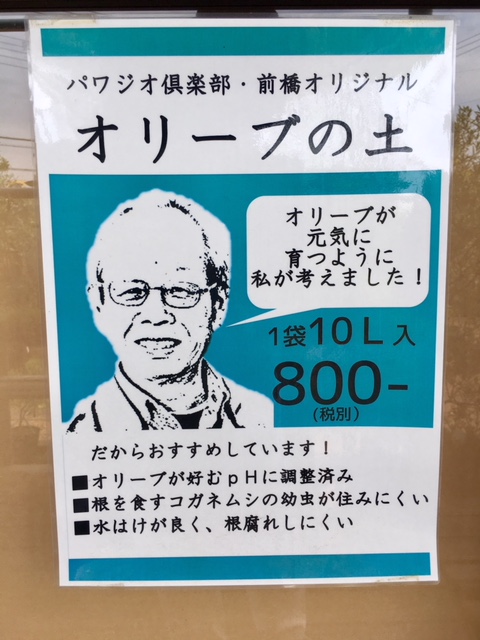 パワジオ倶楽部・前橋オリジナル
オリーブの土
オリーブが
元気に
育つように
私が考えました！
1袋10L入
800-
(税別)
だからおすすめしています！
■オリーブが好むpHに調整済み
■根を食すコガネムシの幼虫が住みにくい
■水はけが良く、根腐れしにくい